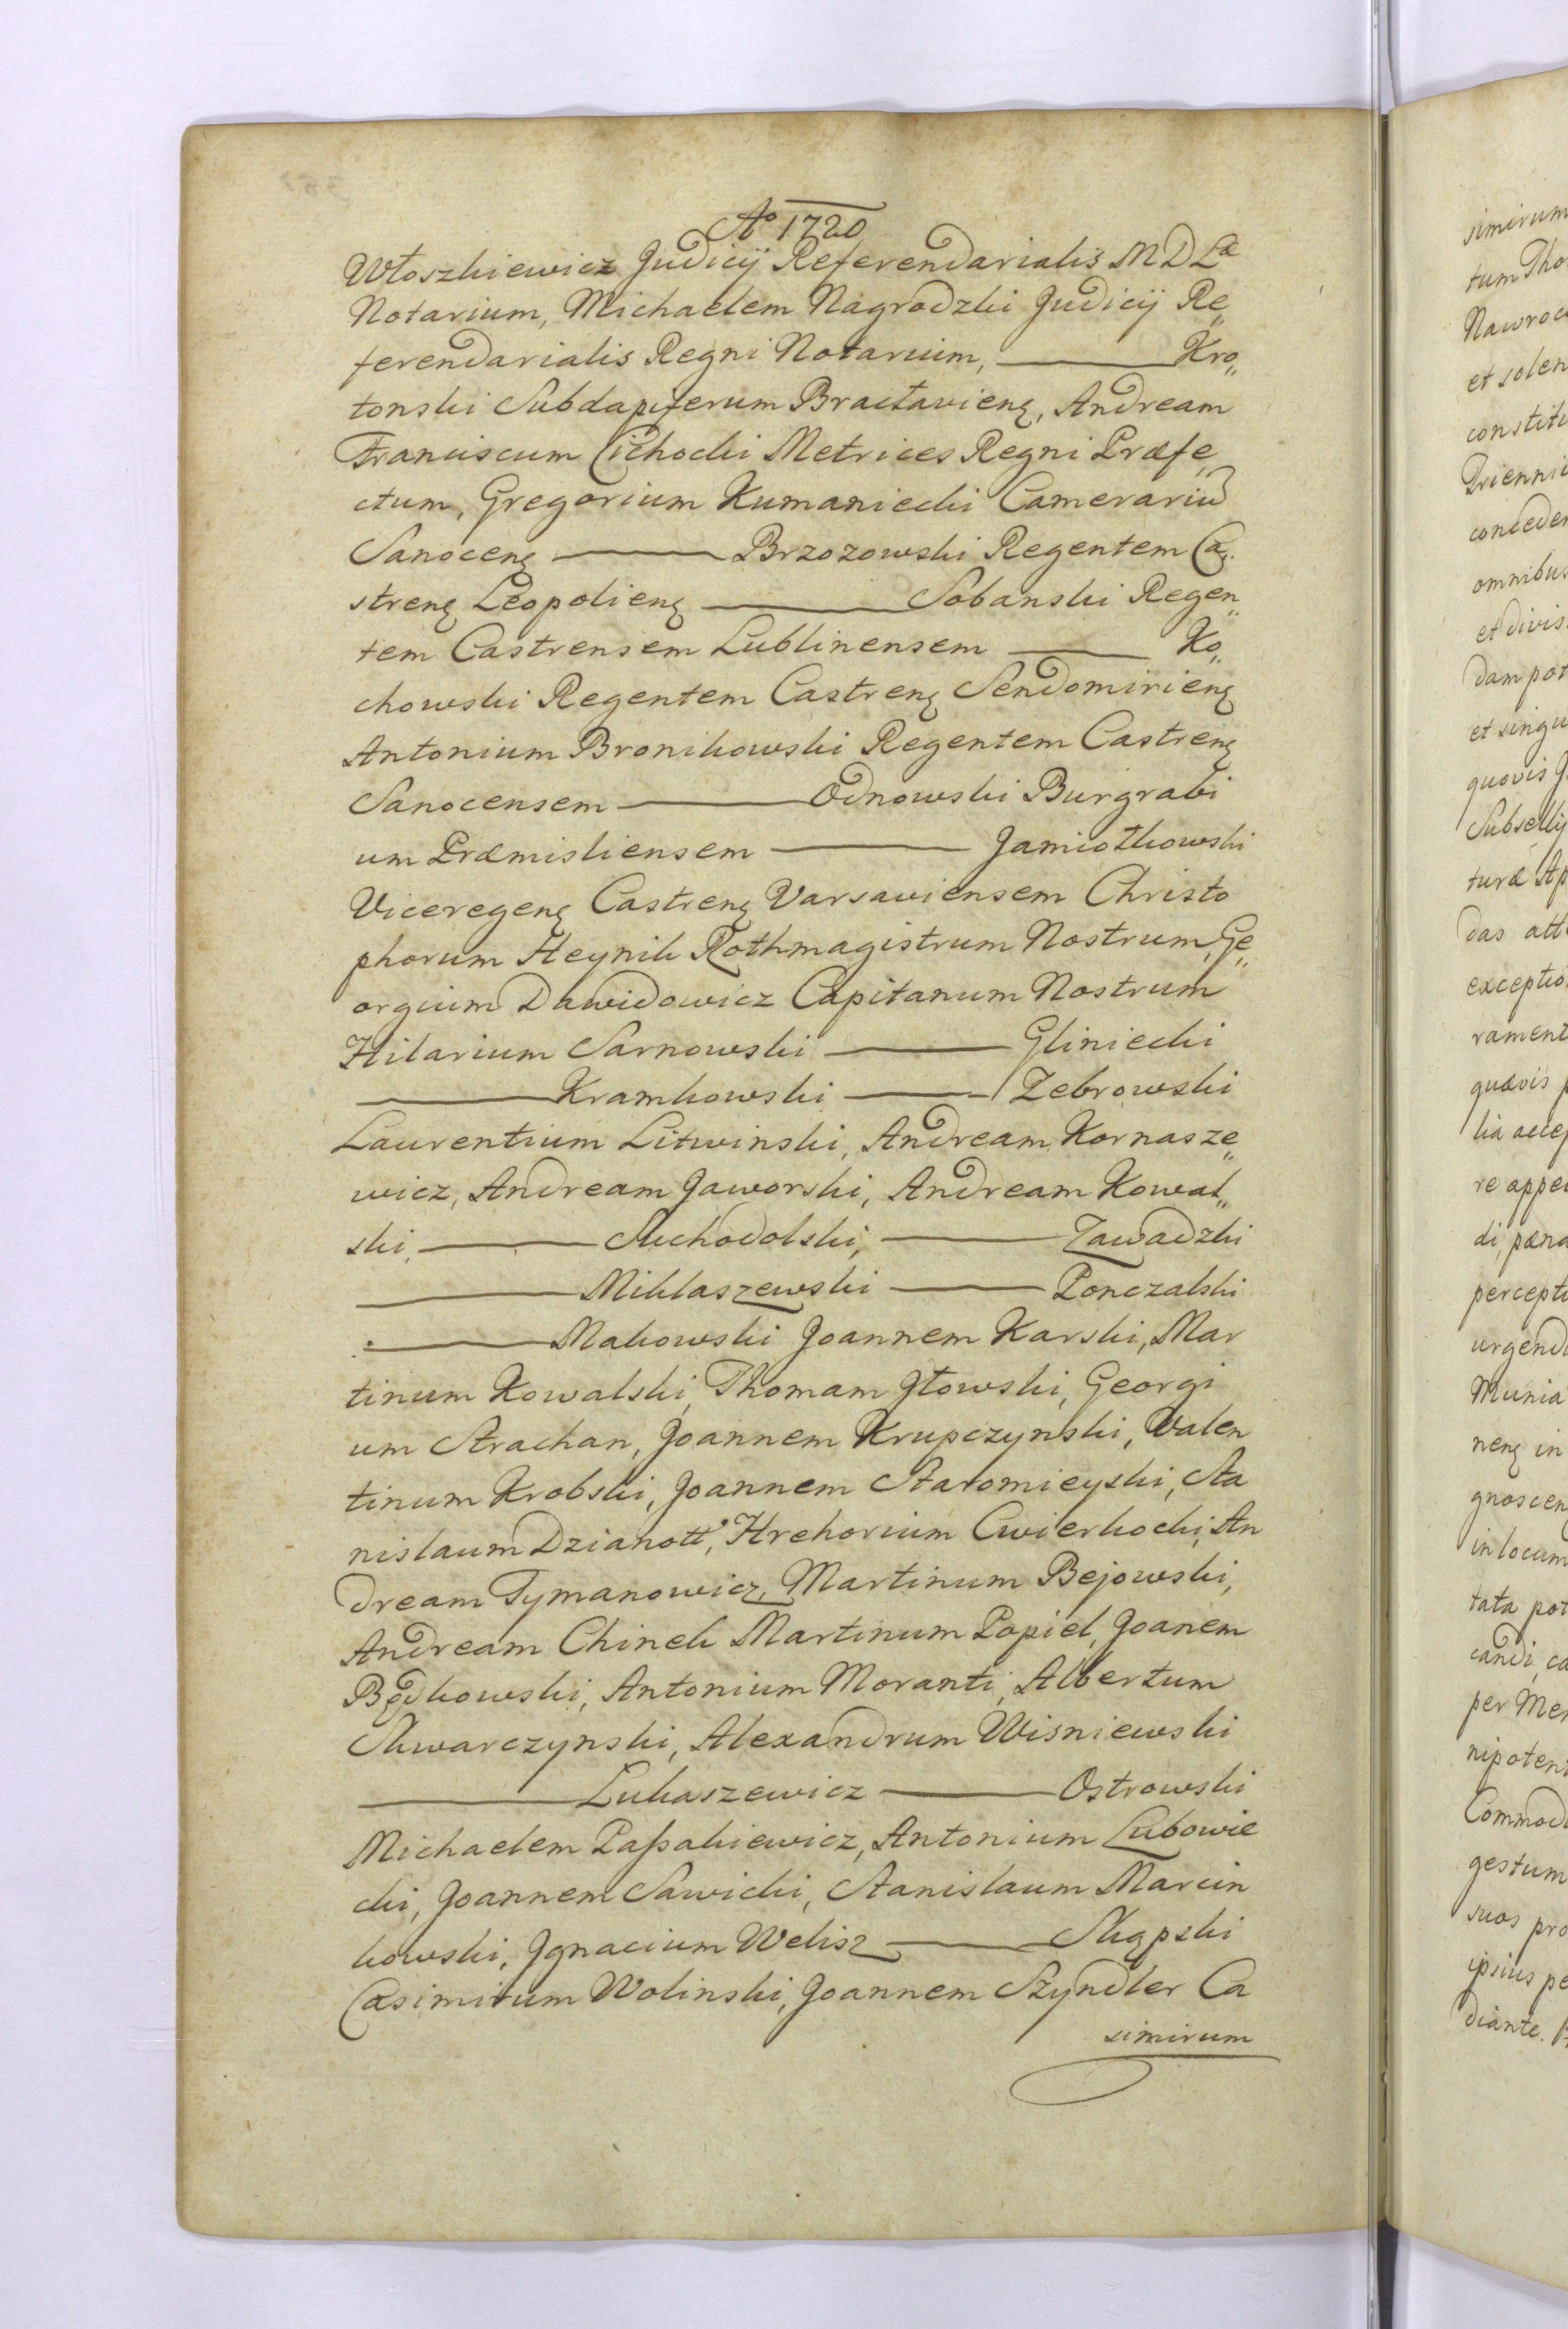 Aº 1720
Włoszkiewicz Judicÿ Referendarialis M D Lae
Notarium, Michaelem Nagrodzki Judicÿ Re„
ferendarialis Regni Notarium, ——— Kro„
tonski Subdapiferum Bracłavienę, Andream
Franciscum Cichocki Metrices Regni Præfe„
ctum, Gregorium Kumaniecki Camerariu
Sanocenę ——— Brzozowski Regentem Ca„
strenę Leopolienę ——— Sobanski Regen„
tem Castrensem Lublinensem ——— Ko„
chowski Regentem Castrenę Sendomirienę
Antonium Bronikowski Regentem Castrenę
Sanocensem ——— Odnowski Burgrabi
um Præmisliensem ——— Jamiołkowski
Viceregenę Castrenę Varsaviensem Christo
phorum Heynik Rothmagistrum Nostrum, Ge„
orgium Dawidowicz Capitanum Nostrum
Hilarium Sarnowski ——— Gliniecki
——— Kramkowski ——— Zebrowski
Laurentium Litwinski, Andream Kornasze„
wicz, Andream Jaworski, Andream Kowal„
ski, ——— Suchodolski, ——— Zawadzki
——— Miklaszewski ——— Ponczalski
——— Makowski Joannem Karski, Mar
tinum Kowalski, Thomam Głowski, Georgi
um Strachan, Joannem Krupczynski, Valen
tinum Krobski, Joannem Staromieyski, Sta
nislaum Dzianott, Hrehorium Cwierkocki, An
dream Tymanowicz, Martinum Bejowski,
Andream Chinek Martinum Popiel, Joanem
Będkowski, Antonium Moranti, Albertum
Skwarczynski, Alexandrum Wisniewski
——— Lukaszewicz ——— Ostrowski
Michaelem Paszakiewicz, Antonium Lubowie
cki, Joannem Sawicki, Stanislaum Marcin
kowski, Ignacium Welisz ——— Skąpski
Casimirum Wolinski, Joannem Szyndler Ca
simirum
simirum
tum Tho
Nawroc
et solen
constitu
Trienni
conceden
omnibus
et divis
dam pot
et singu
quovis J
Subsellÿ
turæ Ap
das att
exceptio
rament
quævis p
lia accep
re appel
di, pæna
percept
urgend
Munia
nenę in
gnoscen
in locum
tata pot
candi, ca
per Me
nipotent
Commod
gestum
suos pro
ipsius pe
diante.